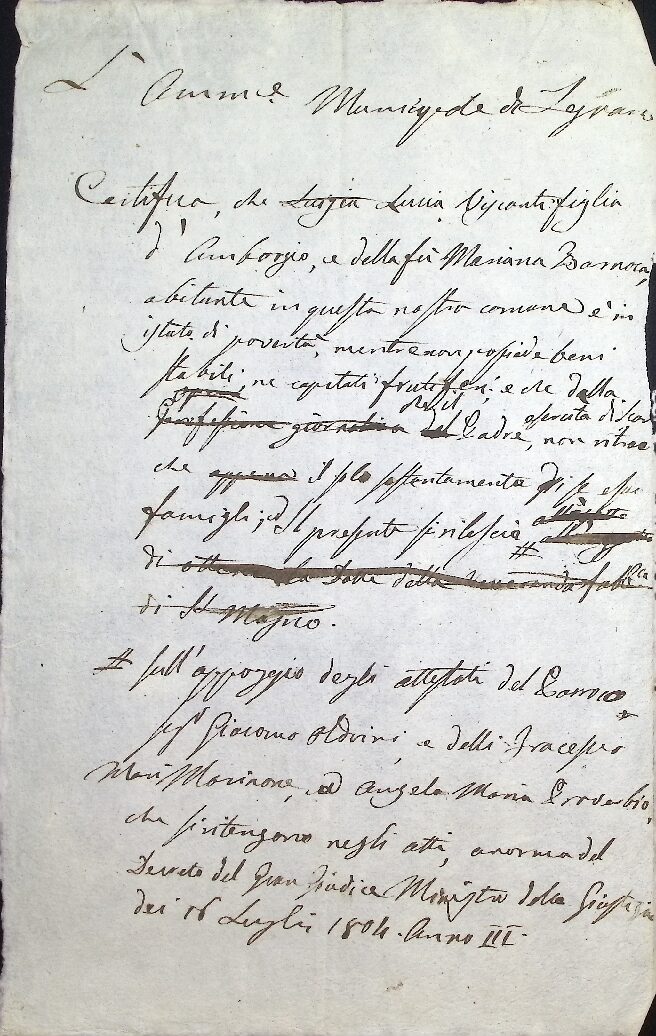 L' Amm.e Municipale di Legnano
Certifica, che Luigia Lucia Visconti figlia
d' Ambrogio, e della fù Mariana Barnoca,
abitante in questa nostra comune è in
istato di povertà, mentre non possiede beni
stabili, ne capitali frutiferi, e che dalla
opera che il esercita di
professione giornaliera del Padre, non ritrae
che appena il solo sostentamento di se e sua
famiglia; ed Il presente si rilascia all'
# di ottenere la Dote della veneranda fabb.ca
di S. Magno.
# sull'appoggio degli attestati del Parroco
sig.r Giacomo Oldrini, e delli Francesco
Mari Morinone, ed Angela Maria Proverbio,
che si ritengono negli atti, a norma del
Decreto del Gran Giudice Ministro della Giustizia
dei 16 Luglio 1804. Anno III.